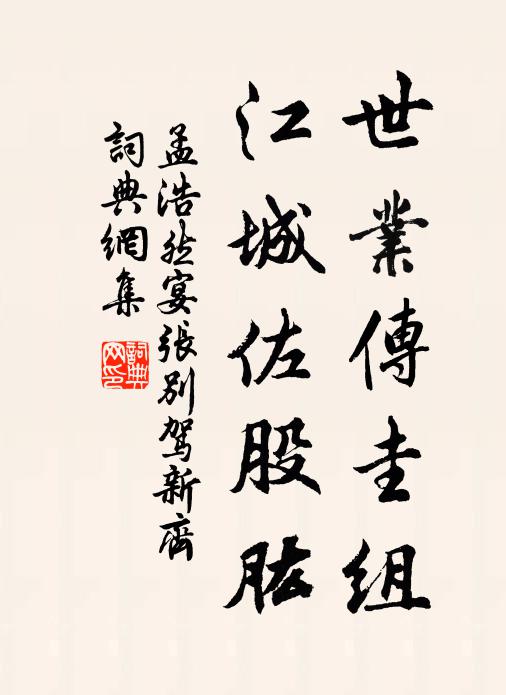 世業傳圭組
江城佐股肱
孟浩然宴張別駕新齊
詞典網集
詞典網印